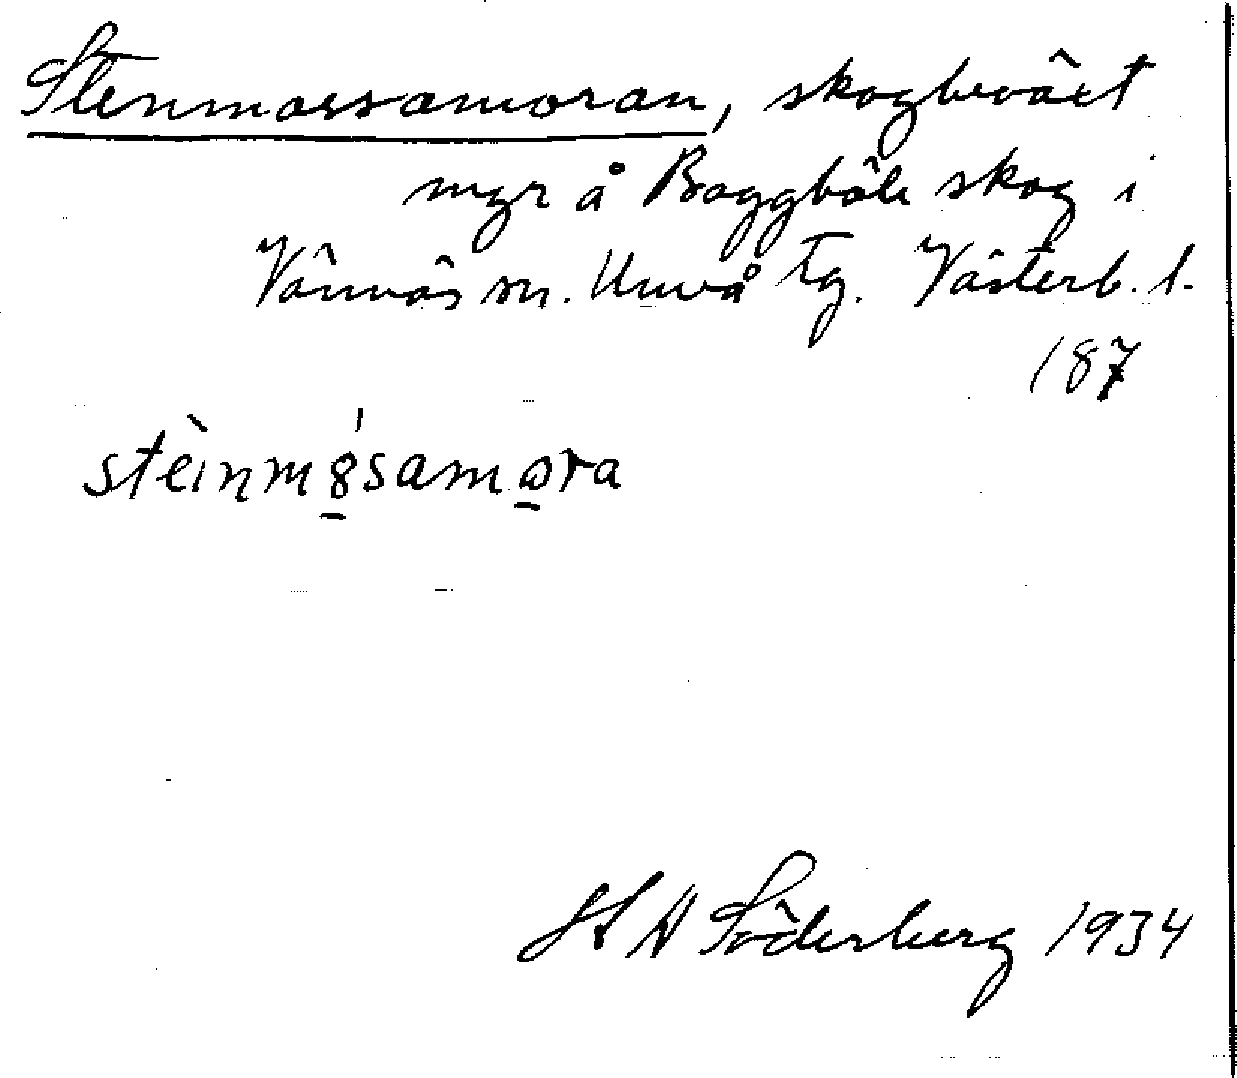 Stenmossamoran, skogbeväxt
myr å Baggböle skog i
Vännäs sn. Umeå tg. Västerb. l.
187
stèinm8́samora
H A Söderberg 1934